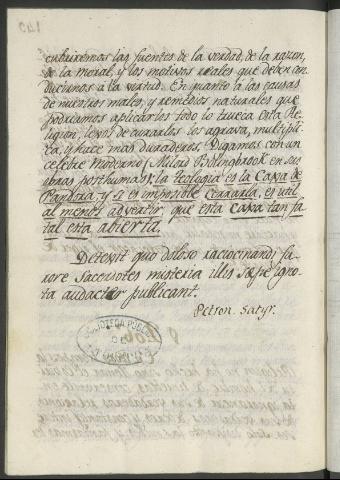 cubriremos las fuentes de la verdad, de la razon,
de la moral, y los motivos reales que deben con
ducirnos a la virtud. En quanto a las causas
de nuestros males, y remedios naturales que
podriamos aplicarlos todo lo trueca esta Re
ligion, lexos de curarlos los agrava, multipli
ca, y hace mas duraderos. Digamos con un
celebre Moderno Milord Bolingbrook en sus
obras posthumas: la Teologia es la Caxa de
Pandora, y si es imposible cerrarla, es util
al menos advertir, que esta Caxa tan fa
tal esta abierta.
Detexit quo doloso vaticinandi fu
rore Sacerdotes misteria illis sæpe igno
ta audacter publicant.
Petron. Satyr.
BIBLIOTECA PUBLICA